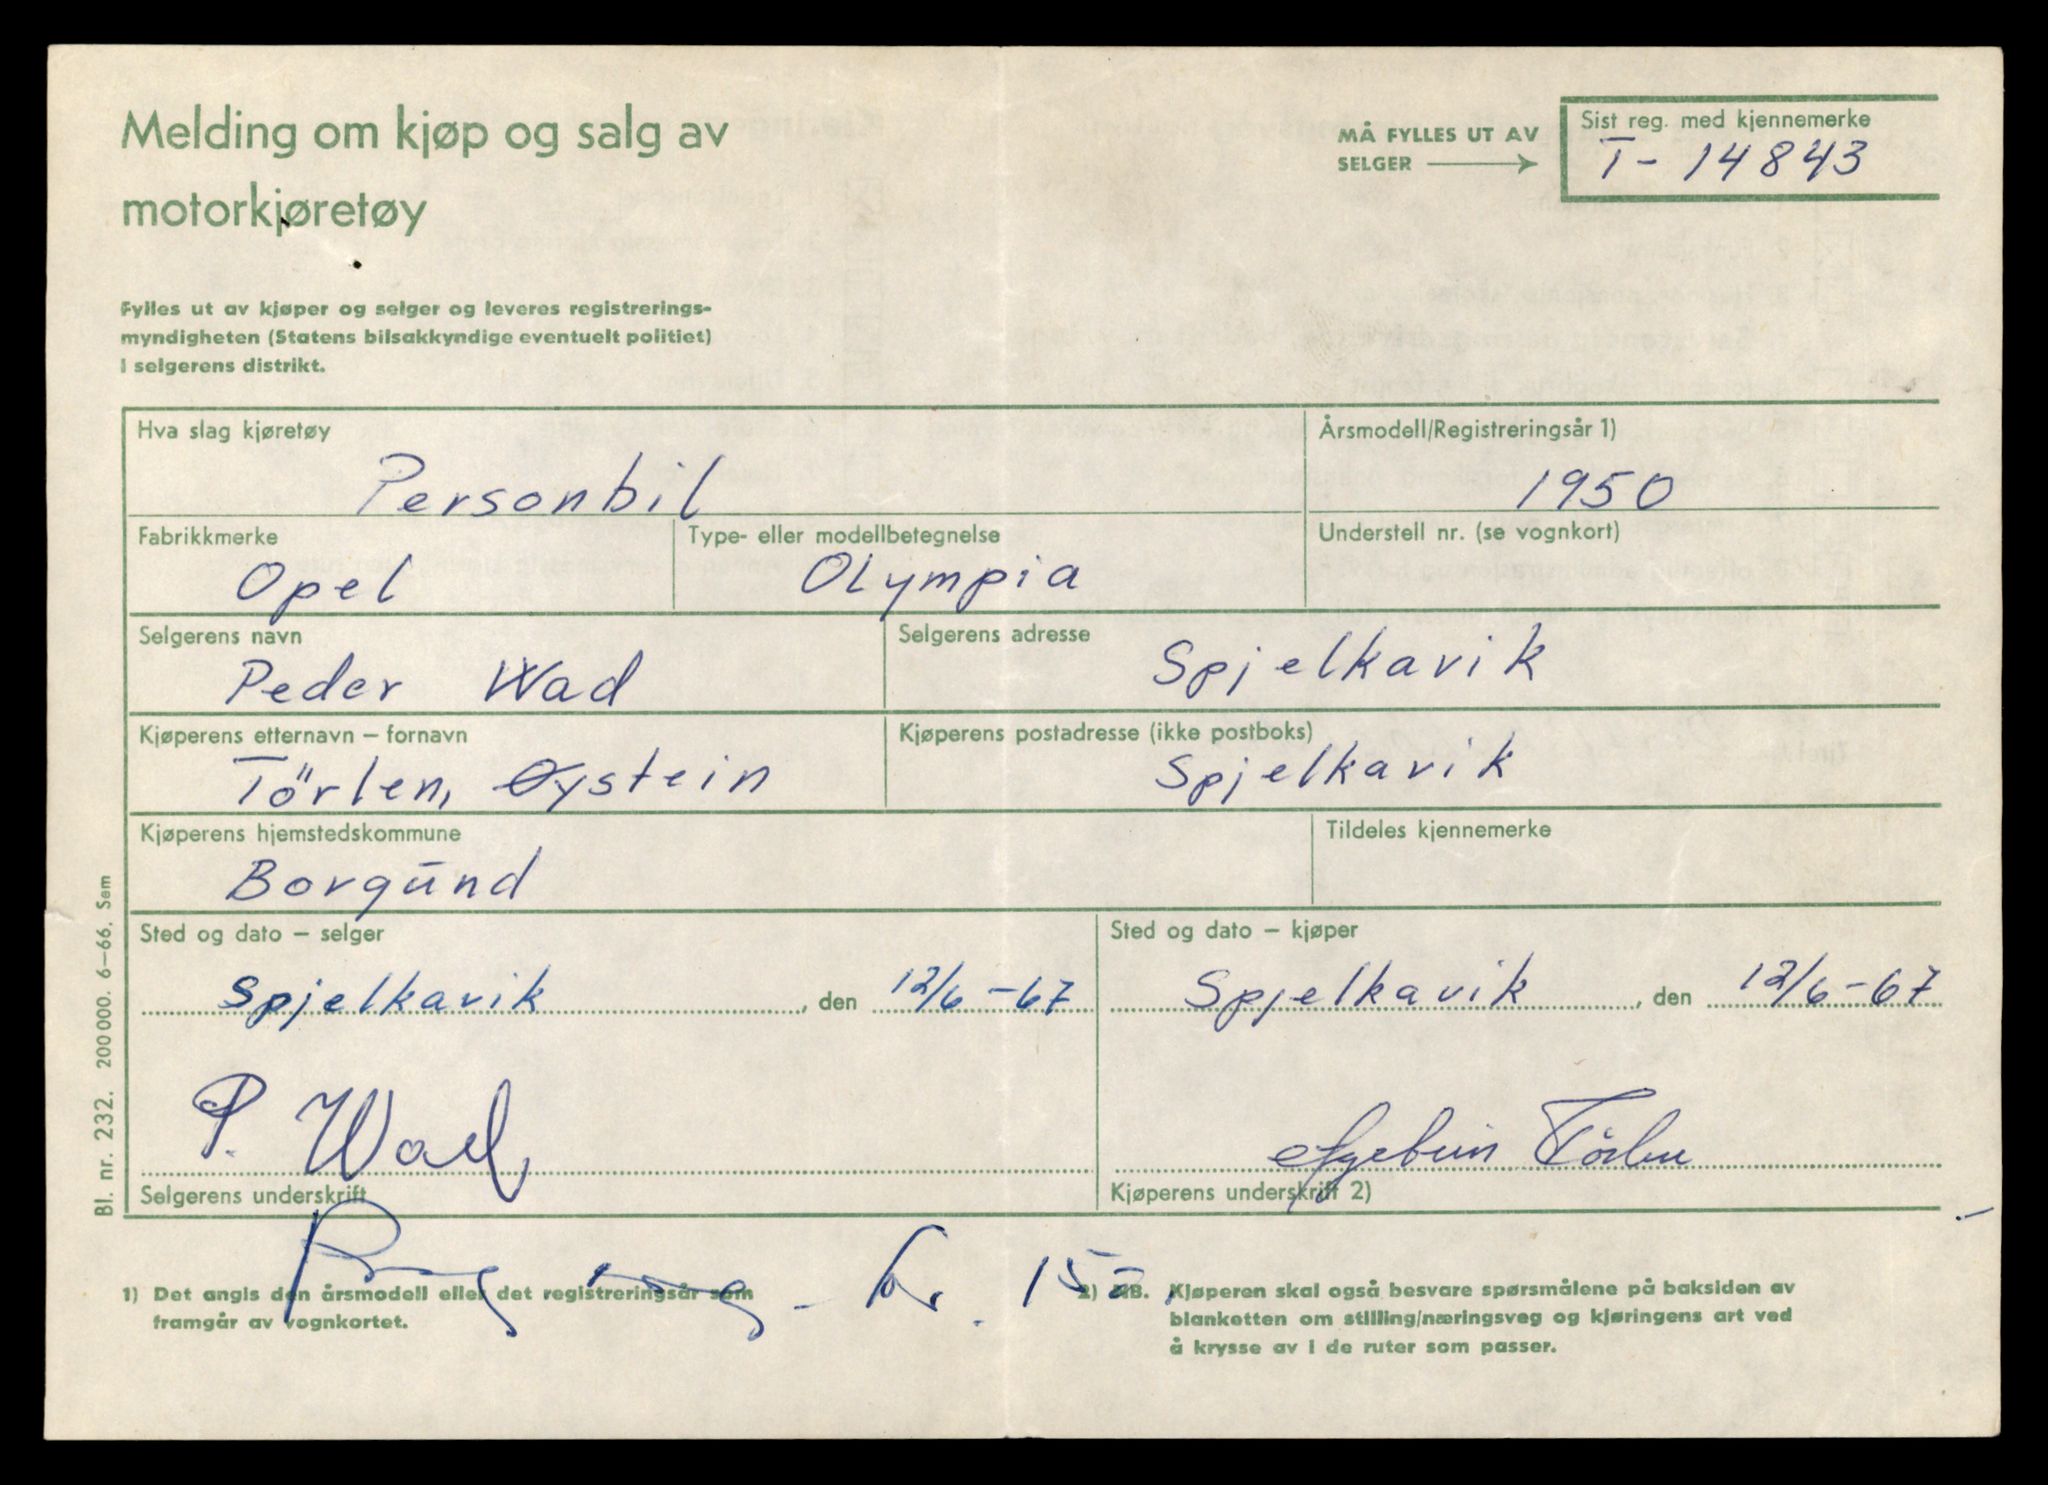 Melding om kjøp og salg av
motorkjøretøy
MÅ FYLLES UT AV
SELGER
Sist reg. med kjennemerke
T- 14843
Fylles ut av kjøper og selger og leveres registrerings-
myndigheten (Statens bilsakkyndige eventuelt politiet)
i selgerens distrikt.
Hva slag kjøretøy
Personbil
Årsmodell/Registreringsår 1)
1950
Fabrikkmerke
Opel
Type- eller modellbetegnelse
Olympia
Understell nr. (se vognkort)
Selgerens navn
Peder Wad
Selgerens adresse
Spjelkavik
Kjøperens etternavn – fornavn
Törlen, Øystein
Kjøperens postadresse (ikke postboks)
Spjelkavik
Kjøperens hjemstedskommune
Borgund
Tildeles kjennemerke
Sted og dato – selger
Spjelkavik, den 12/6-67
Sted og dato – kjøper
Spjelkavik, den 12/6-67
P. Wad
Selgerens underskrift
Øystein Törlen
Kjøperens underskrift 2)
kr. 150,
1) Det angis den årsmodell eller det registreringsår som
framgår av vognkortet.
2) NB. Kjøperen skal også besvare spørsmålene på baksiden av
blanketten om stilling/næringsveg og kjøringens art ved
å krysse av i de ruter som passer.
Bl. nr. 232. 200 000. 6–66. Sem